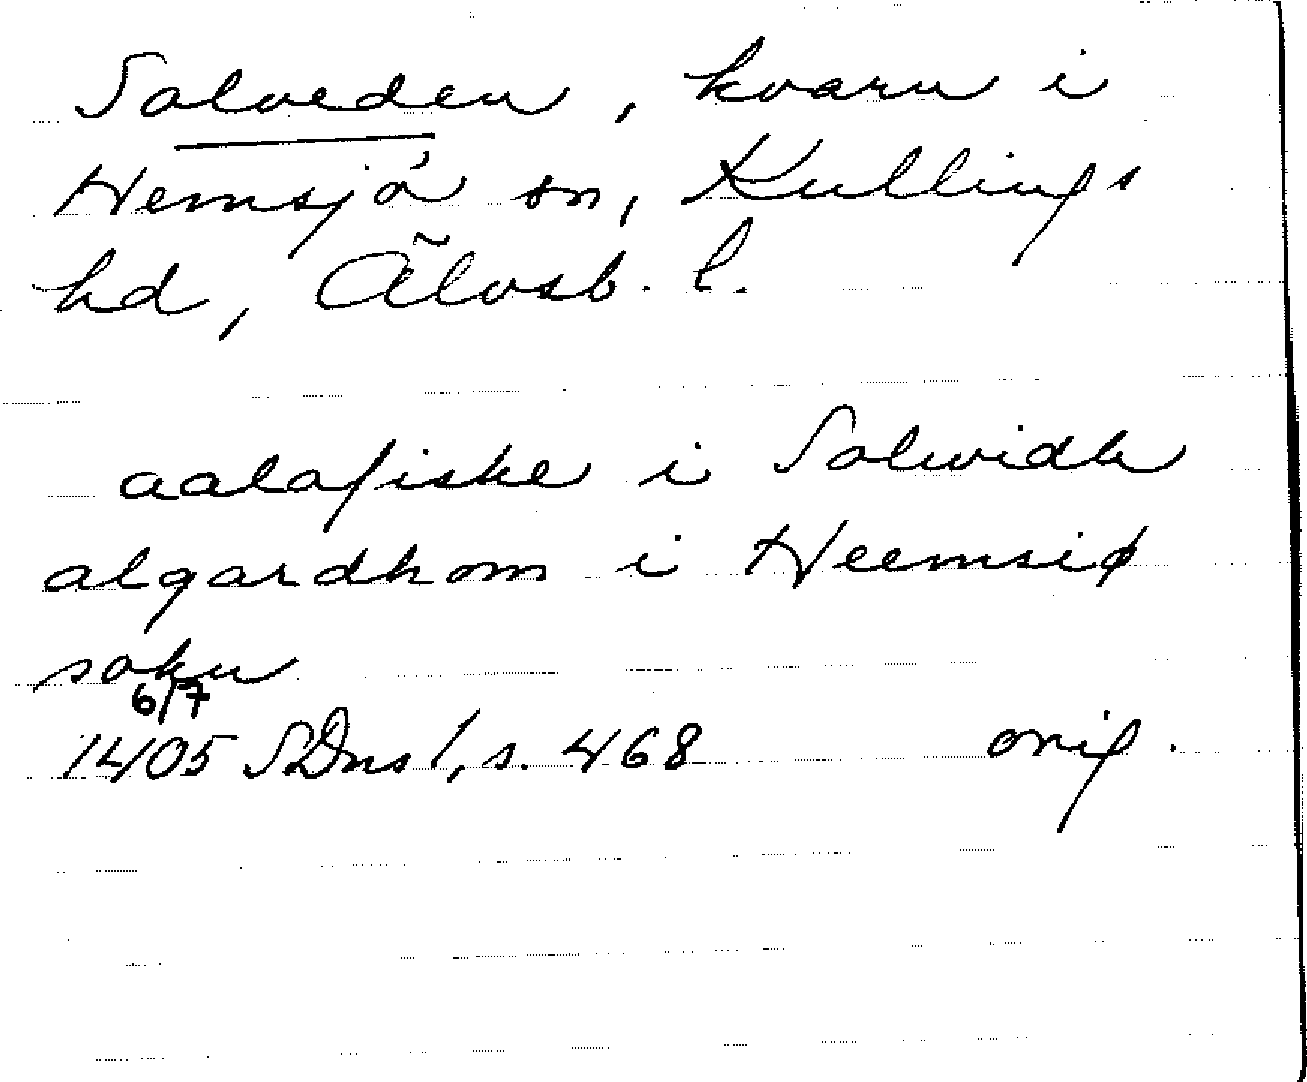 Solveden, kvarn i
Hemsjö sn, Kullings
hd, Älvsb. l.
aalafiske i Solwidh
algardhom i Heemsiø
sokn
6/7
1405 SDns 1, s. 468 orig.